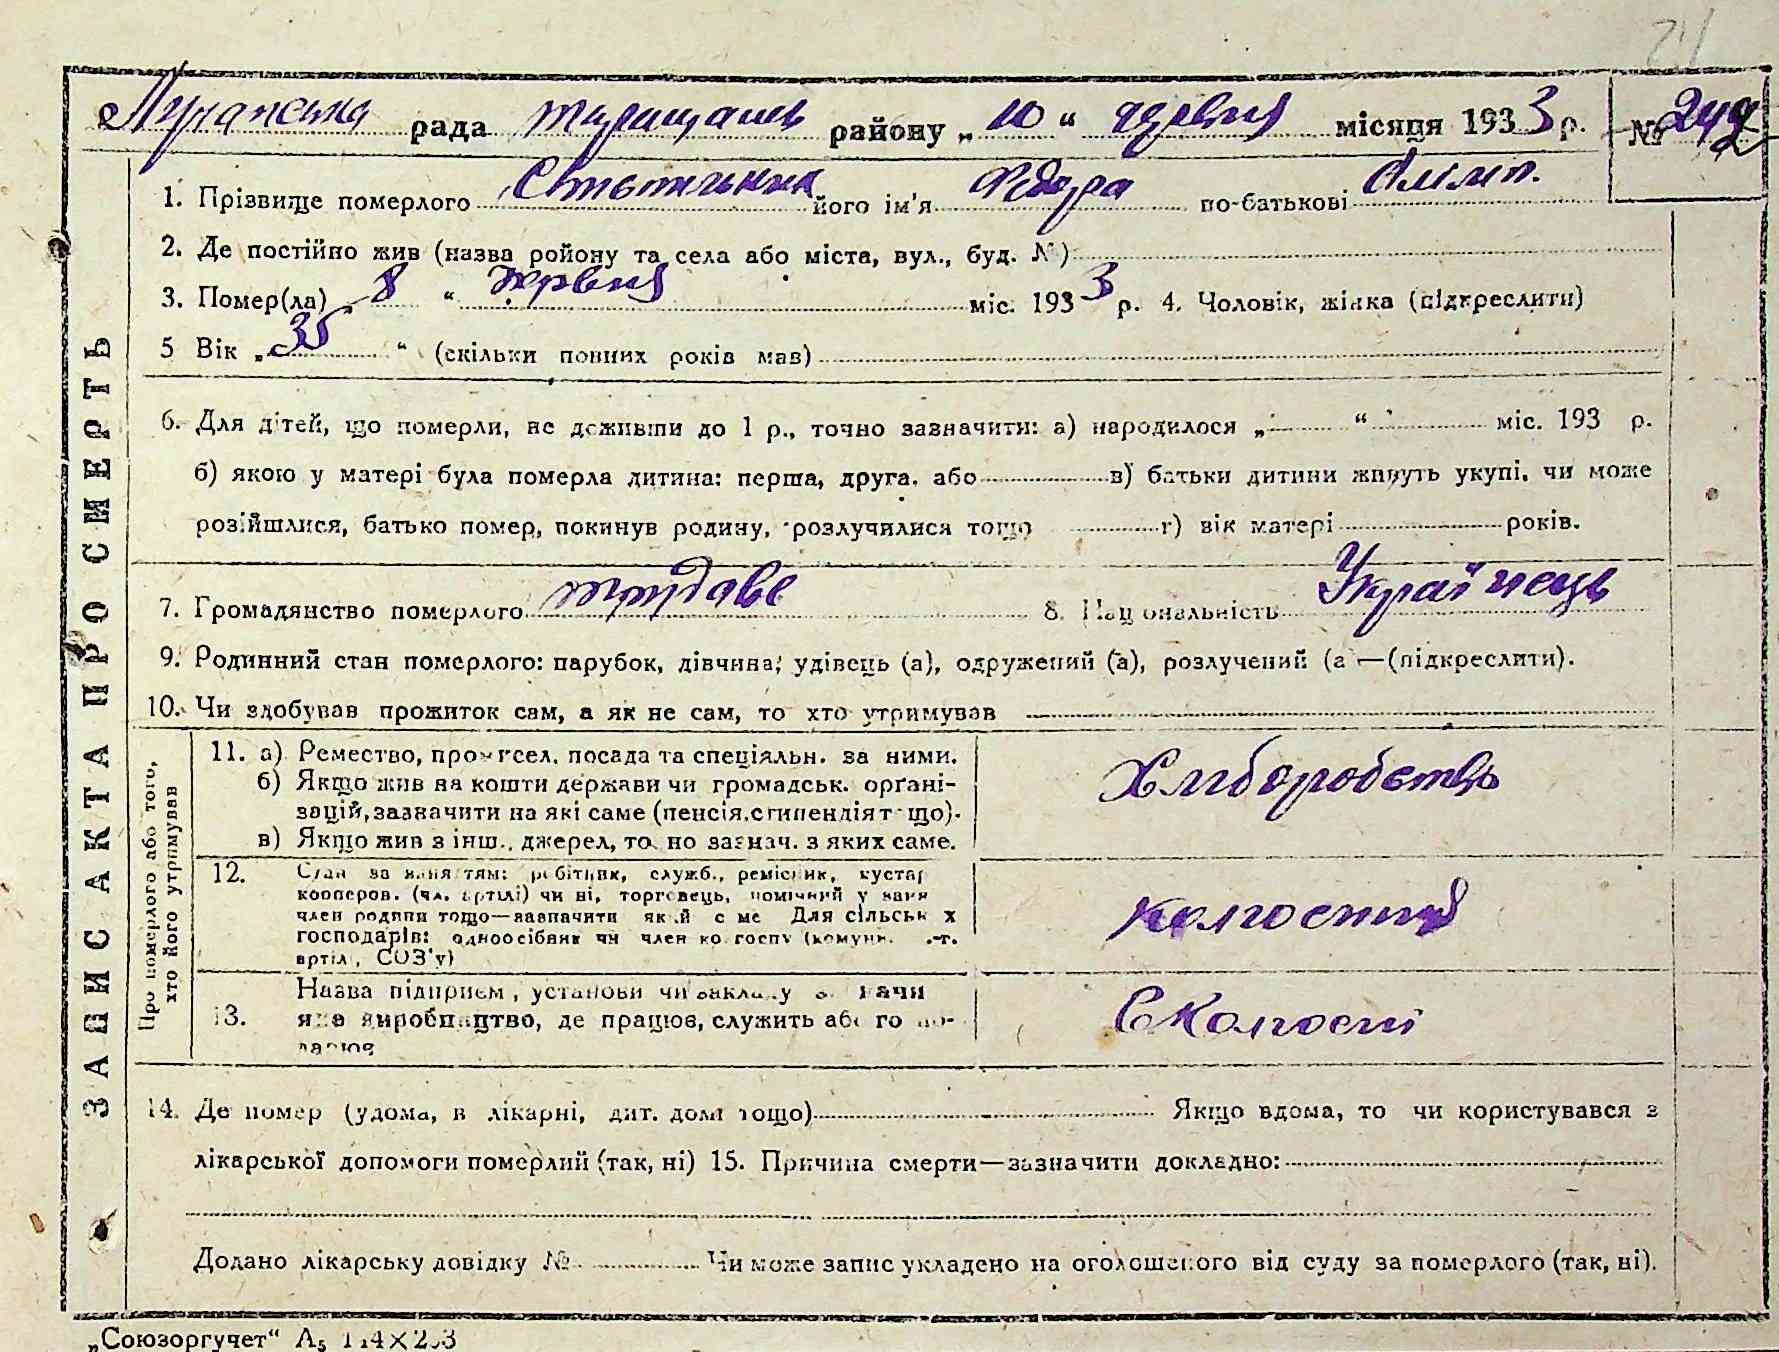 рада района „10“ червня місяця 1933 р. № 242
1. Прізвище померлого його ім'я Федора по-батькові Олімп.
2. Де постійно жив (назва ройону та села або міста, вул., буд. №)
3. Помер(ла) „8“ червня міс. 1933 р. 4. Чоловік, жінка (підкреслити)
5 Вік „35“ (скільки повних років мав)
6. Для дітей, що померли, не доживши до 1 р., точно зазначити: а) народилося „ “ міс. 193 р.
б) якою у матері була померла дитина: перша, друга, або в) батьки дитини живуть укупі, чи може
розійшлися, батько помер, покинув родину, розлучилися тощо г) вік матері років.
7. Громадянство померлого 8. Національність Українець
9. Родинний стан померлого: парубок, дівчина, удівець (а), одружений (а), розлучений (а —(підкреслити).
10. Чи здобував прожиток сам, а як не сам, то хто утримував
ЗАПИС АКТА ПРО СМЕРТЬ
Про померлого або того,
хто його утримував
11. а) Ремество, промисел, посада та спеціяльн. за ними.
б) Якщо жив на кошти держави чи громадськ. органі-
зацій, зазначити на які саме (пенсія, стипендія тощо).
в) Якщо жив з інш. джерел, точно зазнач. з яких саме.
Хліборобство
12. Стан за заняттям: робітник, служб., ремісник, кустар
кооперов. (чл. артілі) чи ні, торговець, помічний у
член родини тощо—зазначити який саме Для сільськ х
господарів: одноосібник чи член колгоспу (комуни,
артіл, СОЗ'у)
колгоспник
13. Назва підприєм, установи чи закладу
яке виробництво, де працює, служить або го
В Колгоспі
14. Де помер (удома, в лікарні, дит. домі тощо) Якщо вдома, то чи користувався з
лікарської допомоги померлий (так, ні) 15. Причина смерти—зазначити докладно:
Додано лікарську довідку № Чи може запис укладено на оголошеного від суду за померлого (так, ні).
„Союзоргучет“ А5